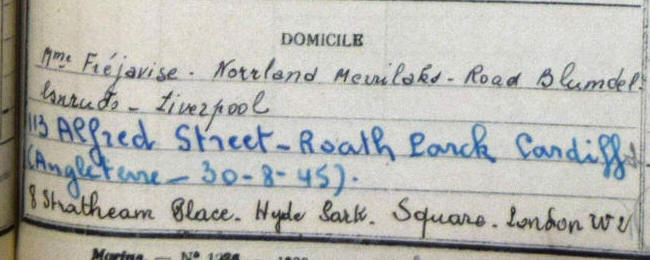 DOMICILE
Mme Fréjavise. Norrland Merriloks - Road Blumdel.
- Liverpool
113 Alfred Street - Roath Parck Cardiff
(Angleterre - 30-8-45).
8 Stratheam Place. Hyde Park. Square. London W2
Marine. — N°